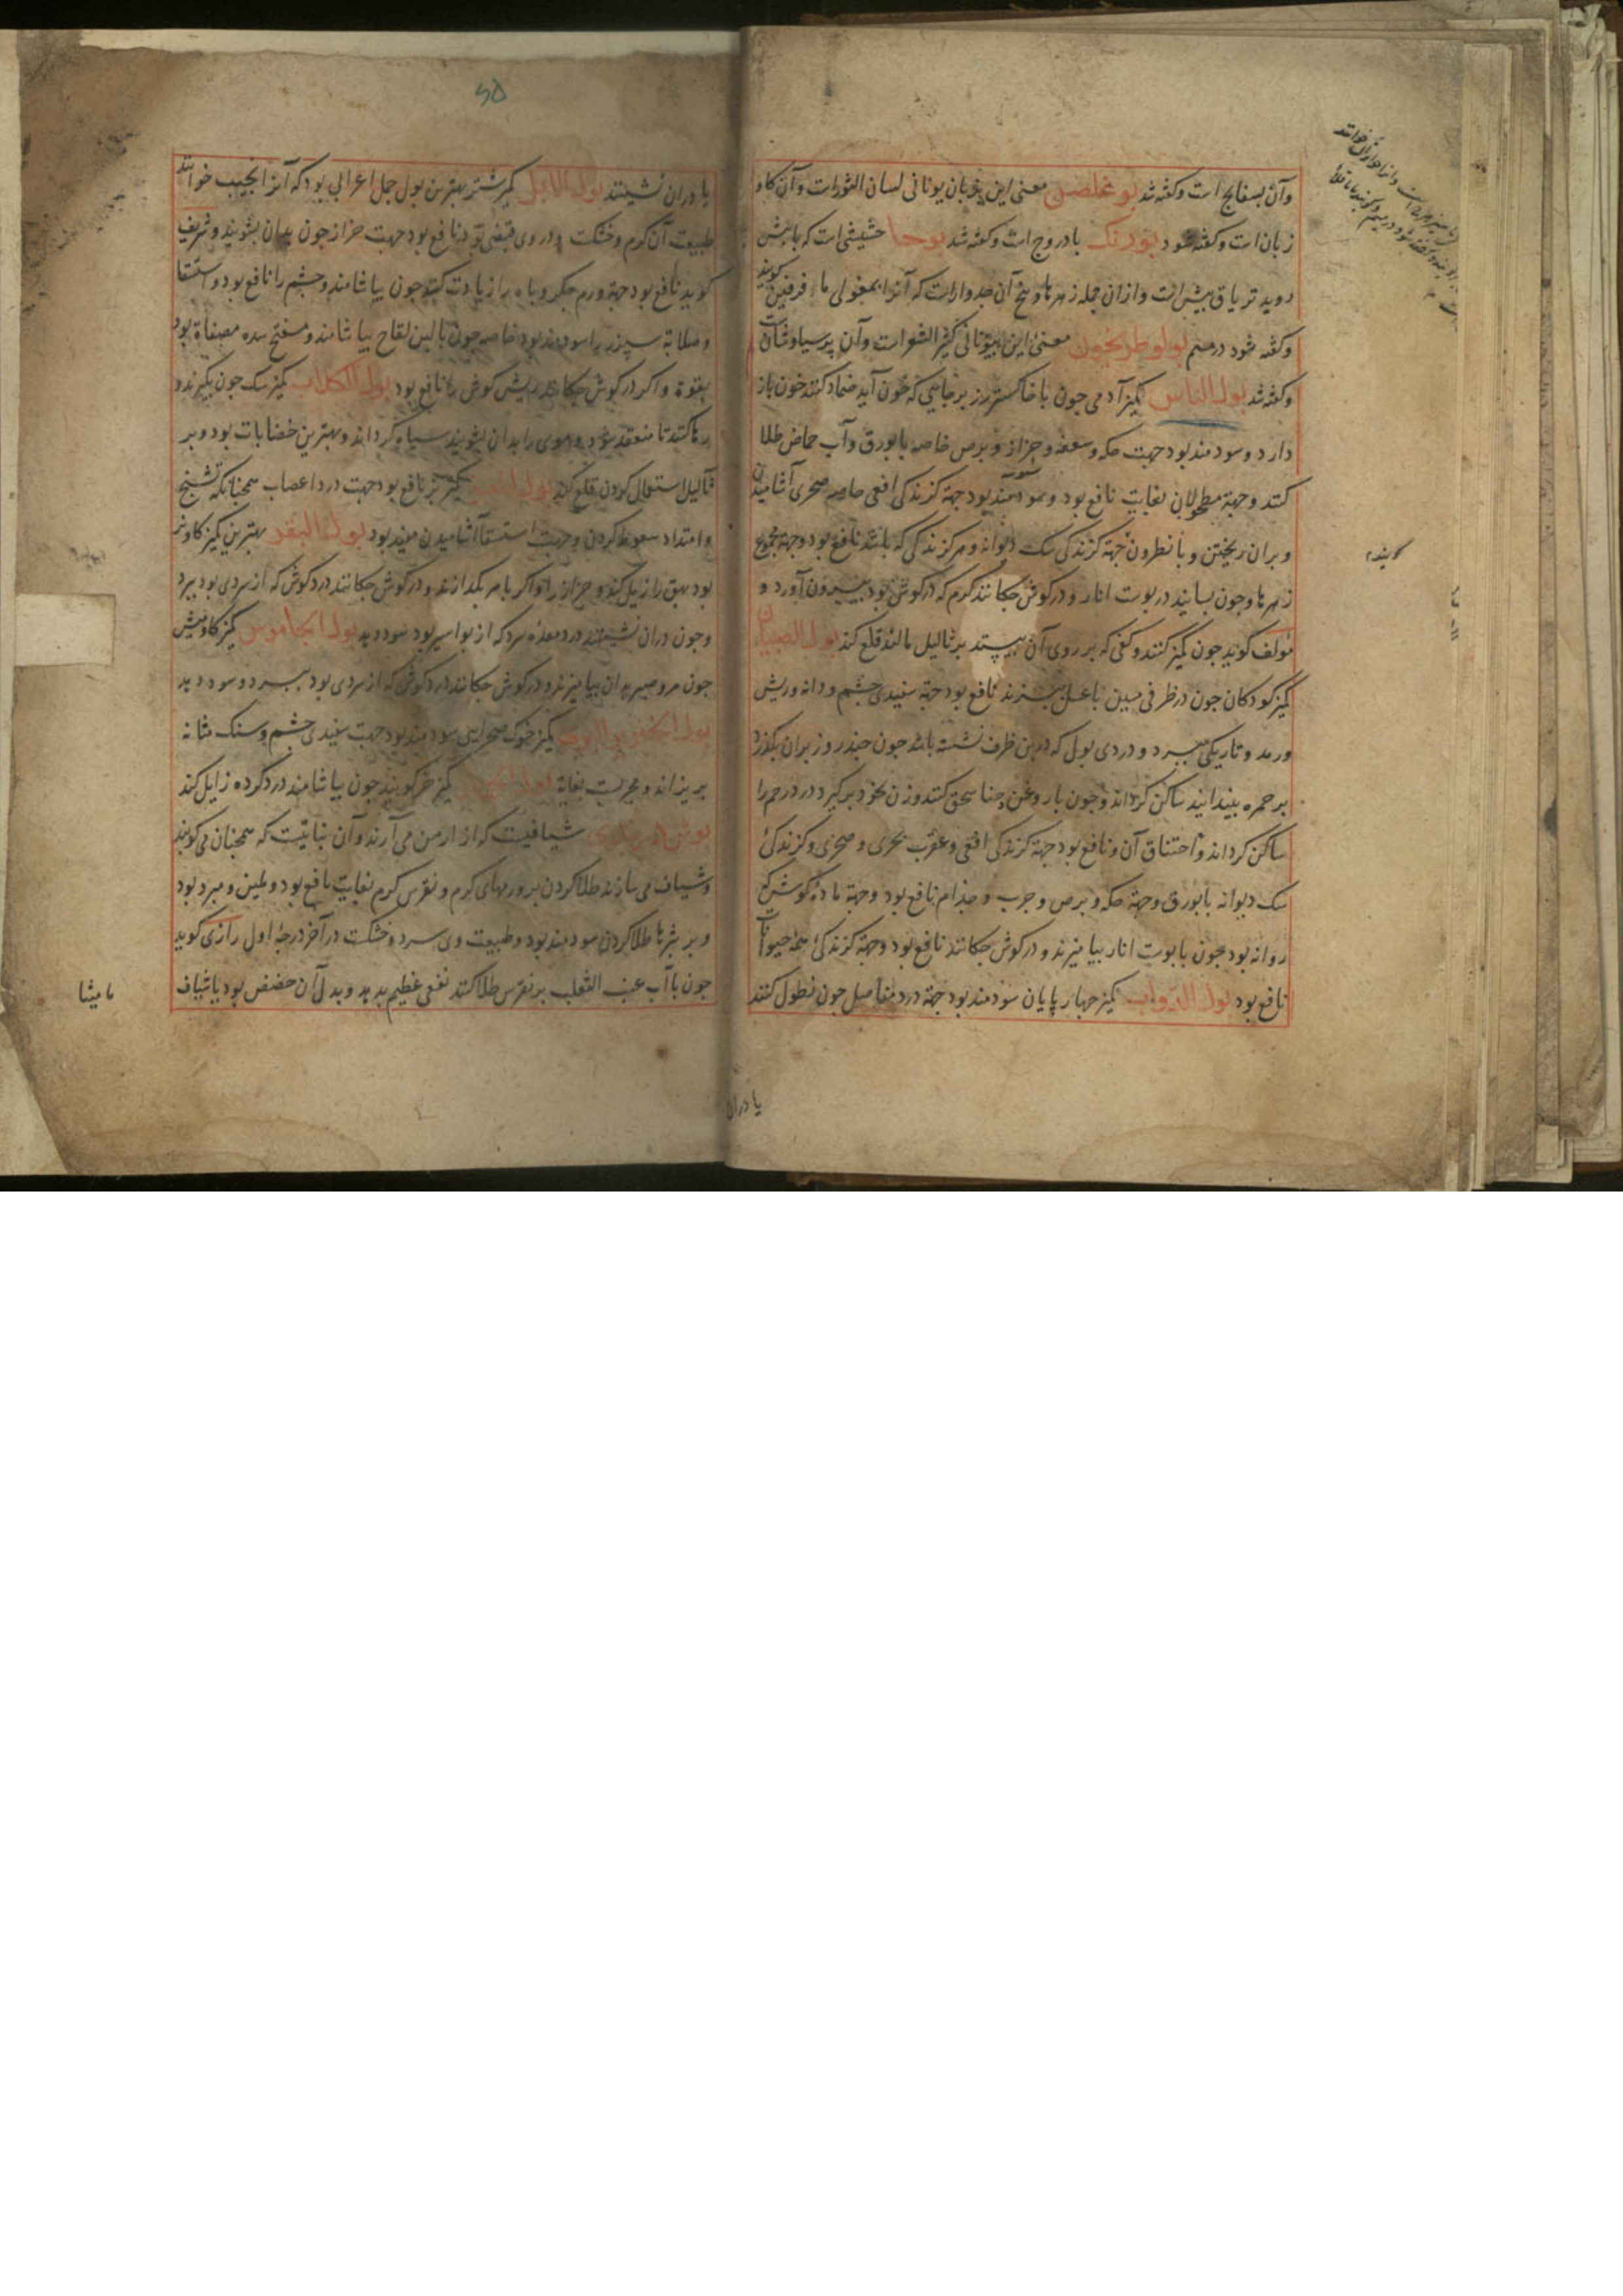 وآن بسفایج است وکفته شد بوغلصن معنی این بزبان یونانی لسان الثورات وآن کاو
زبان است وکفته شود بورنک بادروج است وکفته شد بوحا حشیشی است که با بیش
روید تریاق بیش است وازان جمله زهرها وبیخ آن جدوارات که آنرا بمغولی ما فرفین کویند
وکفته شود درمیم بولوطریخون معنی این بیونانی کثیر الشعرات وآن پرسیاوشان است
وکفته شد بول الناس کمیز آدمی جون با خاکستر رز برجایی که خون آید ضماد کنند خون باز
دارد وسودمند بود جهت حکه وسعفه وحزاز وبرص خاصه با بورق وآب حماض طلا
کنند وجهة مطحولان بغایت نافع بود وسودمند بود جهة کزندکی افعی خاصه صحری آشامیدن
وبران ریختن وبا نطرون جهة کزندکی سک دیوانه وهر کزندکی که باشد نافع بود وجهة مجموع
زهرها وجون بسایند در پوست انار ودر کوش جکانند کرم که در کوش بود بیرون آورد و
مولف کوید جون کمیز کنند وکفی که بر روی آن بیستد بر ثالیل مالند قلع کند بول الصبیان
کمیز کودکان جون در ظرفی مسین با عسل بپزند نافع بود جهة سفیدی چشم ودانه وریش
ورمد وتاریکی ببرد ودردی بول که در بن ظرف نشسته باشد جون چند روز بران بکذرد
بر حمره بیندایند ساکن کرداند وجون با روغن حنا سحق کنند وزن بخود برکیرد درد رحم را
ساکن کرداند واختناق آن ونافع بود جهة کزندکی افعی وعقرب بحری وصخری وکزندکی
سک دیوانه با بورق وجهة حکه وبرص وجرب وجذام نافع بود وجهة ماده کوش که
روانه بود جون با پوست انار بیامیزند ودر کوش جکانند نافع بود وجهة کزندکی همه حیوانات
نافع بود بول الدواب کمیز جهار پایان سودمند بود جهة درد مفاصل جون نطول کنند
یا دران
کویند
یا دران نشینند بول الابل کمیز شتر بهترین بول جمل اعرابی بود که آنرا نجیب خوانند
طبیعت آن کرم وخشکست ودر وی قبضی بود نافع بود جهت حزاز جون بدان بشویند وشریف
کوید نافع بود جهة ورم جکر وباه را زیادت کند جون بیاشامند وچشم را نافع بود واستسقا
وصلابة سپرز را سودمند بود خاصه جون با لبن لقاح بیاشامند ومفتح سده مصفاة بود
بقوة واکر در کوش جکانند ریش کوش را نافع بود بول الکلاب کمیز سک جون بکیرند و
رها کنند تا منعقد شود وموی را بدان بشویند سیاه کرداند وبهترین خضابات بود وبر
ثالیل استعمال کردن قلع کند کمیز بز نافع بود جهت درد اعصاب همجنانکه تشنج
وامتداد سعوط کردن وجهت استسقا آشامیدن مفید بود بول البقر بهترین کمیز کاو نر
بود بهق را زایل کند وحزاز را واکر با مر بکدازند ودر کوش جکانند درد کوش که از سردی بود ببرد
وجون دران نشینند درد معده سرد که از بواسیر بود سود دهد بول الجاموس کمیز کاومیش
جون مر وصبر بدان بیامیزند ودر کوش جکانند درد کوش که از سردی بود ببرد وسود دهد
بول الخنزیر البری کمیز خوک صحرایی سودمند بود جهت سفیدی چشم وسنک مثانه
بریزاند ومجربست بغایة کمیز خر کویند جون بیاشامند درد کرده زایل کند
بوش دربندی شیافیست که از ارمن می آرند وآن نباتیست که همجنان می کویند
وشیاف می سازند طلا کردن بر ورمهای کرم ونقرس کرم بغایت نافع بود وملین ومبرد بود
وبر بثرها طلا کردن سودمند بود وطبیعت وی سرد وخشکست در آخر درجه اول رازی کوید
جون با آب عنب الثعلب بر نقرس طلا کنند نفعی عظیم بدهد وبدل آن حضض بود یا شیاف
مامیثا